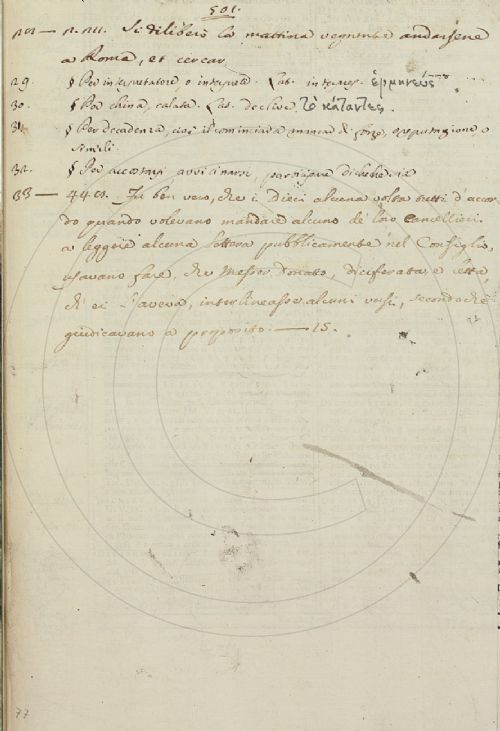 501.
Si diliberò la mattina vegnente andarsene
a Roma, et cercar
29. § Per interpretatore, o interprete. Lat. interpres. ἑρμηνεύς
30. § Per china, calata. Lat. declive, τὸ κάταντες.
31. § Per decadenza, cioè il cominciar a mancar di forze, o reputazione o
simili.
32. § Per accostarsi, avvicinarsi, partecipare di
33 — 44. Fu ben vero, che i Dieci alcuna volta tutti d'accor-
do quando volevano mandare alcuno de' loro Cancellieri
a leggere alcuna lettera pubblicamente nel Consiglio,
usavano fare, che Messer Donato, diciferata e letta,
ch' ei l'aveva, interlineasse alcuni versi, secondo che
giudicavano a proposito. — 15.
77